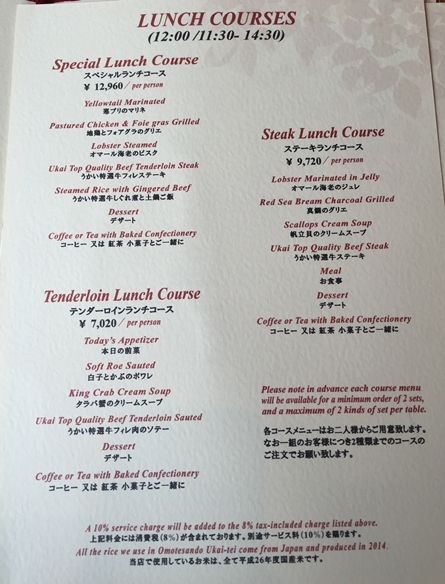 LUNCH COURSES
(12:00 /11:30- 14:30)
Special Lunch Course
スペシャルランチコース
¥ 12,960 / per person
Yellowtail Marinated
寒ブリのマリネ
Pastured Chicken & Foie gras Grilled
地鶏とフォアグラのグリエ
Lobster Steamed
オマール海老のビスク
Ukai Top Quality Beef Tenderloin Steak
うかい特選牛フィレステーキ
Steamed Rice with Gingered Beef
うかい特選牛しぐれ煮と土鍋ご飯
Dessert
デザート
Coffee or Tea with Baked Confectionery
コーヒー 又は 紅茶 小菓子とご一緒に
Tenderloin Lunch Course
テンダーロインランチコース
¥ 7,020 / per person
Today's Appetizer
本日の前菜
Soft Roe Sauted
白子とかぶのポワレ
King Crab Cream Soup
タラバ蟹のクリームスープ
Ukai Top Quality Beef Tenderloin Sauted
うかい特選牛フィレ肉のソテー
Dessert
デザート
Coffee or Tea with Baked Confectionery
コーヒー 又は 紅茶 小菓子とご一緒に
Steak Lunch Course
ステーキランチコース
¥ 9,720 / per person
Lobster Marinated in Jelly
オマール海老のジュレ
Red Sea Bream Charcoal Grilled
真鯛のグリエ
Scallops Cream Soup
帆立貝のクリームスープ
Ukai Top Quality Beef Steak
うかい特選牛ステーキ
Meal
お食事
Dessert
デザート
Coffee or Tea with Baked Confectionery
コーヒー 又は 紅茶 小菓子とご一緒に
Please note in advance each course menu
will be available for a minimum order of 2 sets,
and a maximum of 2 kinds of set per table.
各コースメニューはお二人様からご用意致します。
なお一組のお客様につき2種類までのコースの
ご注文でお願い致します。
A 10% service charge will be added to the 8% tax-included charge listed above.
上記料金には消費税(8%)が含まれております。別途サービス料(10%)を賜ります。
All the rice we use in Omotesando Ukai-tei come from Japan and produced in 2014.
当店で使用しているお米は、全て平成26年度国産米です。